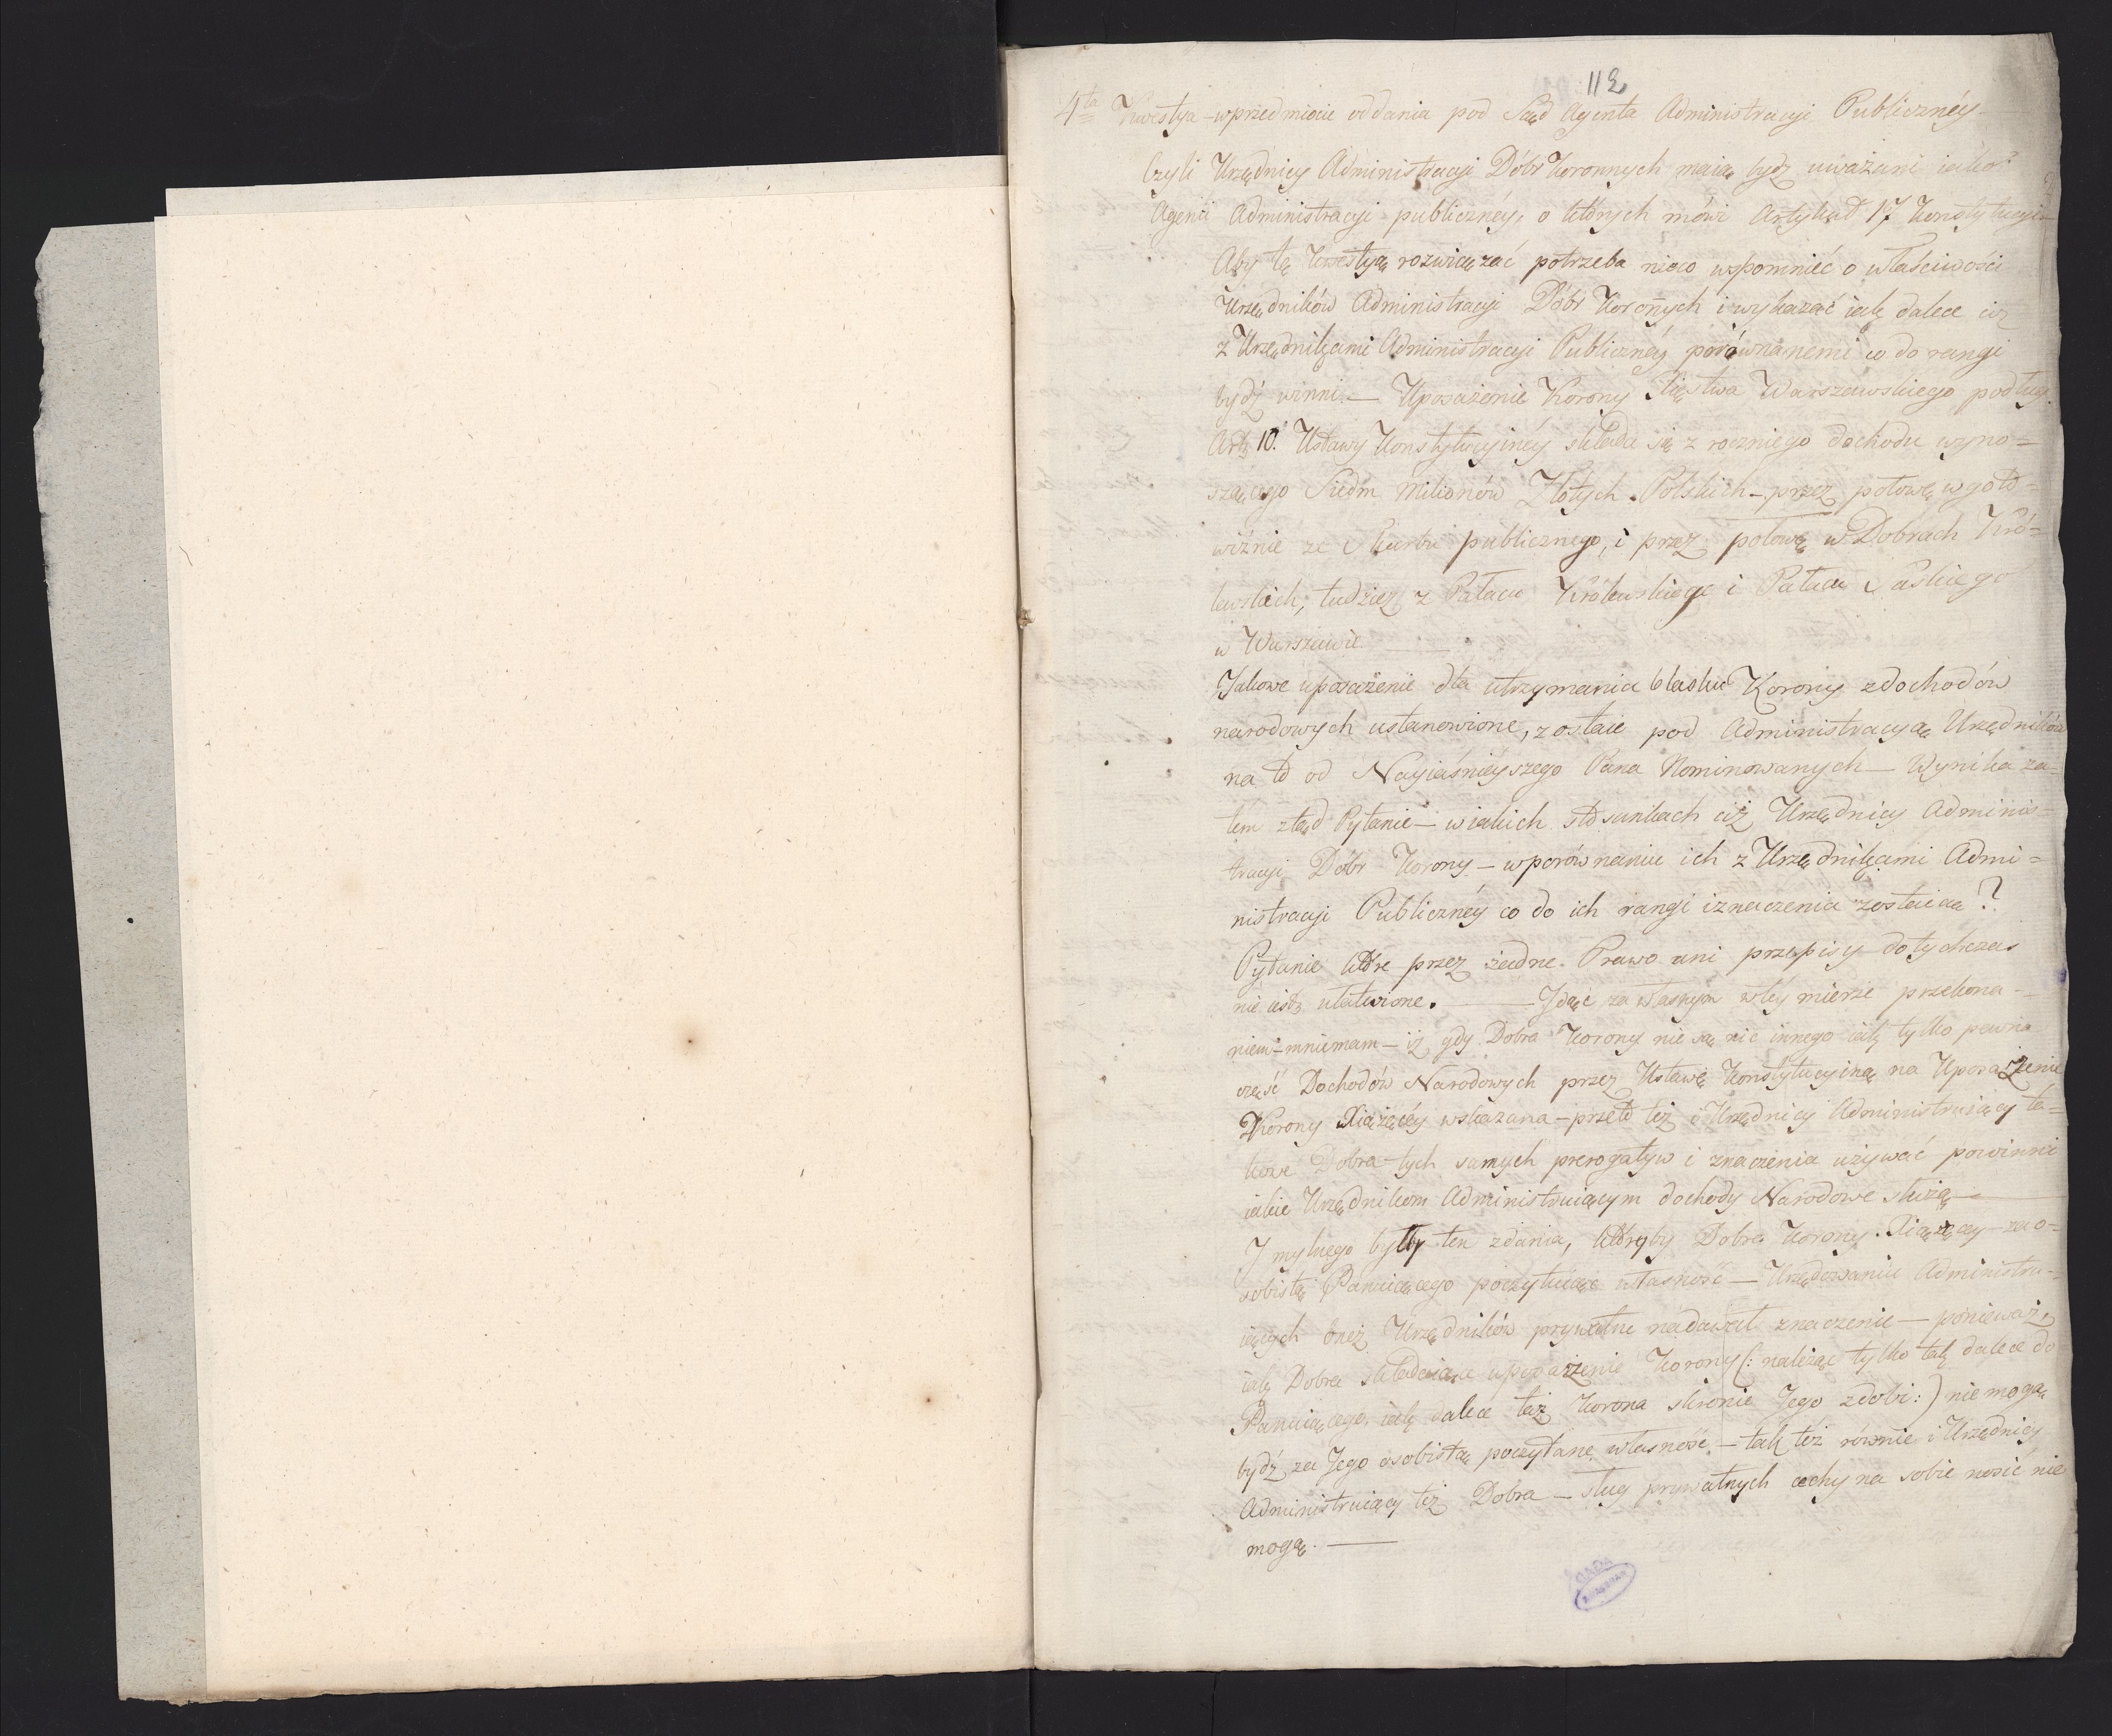 112
4ta Kwestya – w przedmiocie oddania pod Sąd Agenta Administracyi Publicznéy –
Czyli Urzędnicy Administracyi Dóbr Koronnych maią bydź uważani iako?
Agenci Administracyi publicznéy, o których mówi Artykuł 17 Konstytucyi –
Aby tę kwestyą rozwiązać potrzeba nieco wspomnieć o właściwości
Urzędników Administracyi Dóbr Koroñych i wykazać iak dalece ciż
z Urzędnikami Administracyi Publicznéy porównanemi co do rangi
bydź winni. — Uposażenie Korony Xięstwa Warszawskiego podług
Art: 10. Ustawy Konstytucyinéy składa się z roczniego dochodu wyno=
szącego Siedm Milionów Złotych Polskich – przez połowę w goto=
wiźnie ze Skarbu publicznego, i przez połowę w Dobrach Kró=
lewskich, tudzież z Pałacu Królewskiego i Pałacu Saskiego
w Warszawie —
Jakowe uposażenie dla utrzymania blasku Korony z dochodów
narodowych ustanowione, zostaie pod Administracyą Urzędników
na to od Nayiaśnieyszego Pana Nominowanych — Wynika za=
tem ztąd Pytanie – w iakich stosunkach ciż Urzędnicy Adminis=
tracyi Dóbr Korony – w porównaniu ich z Urzędnikami Admi=
nistracyi Publicznéy co do ich rangi i znaczenia zostaią?
Pytanie które przez żadne Prawo ani przepisy dotychczas
nie iest ułatwione. — Idąc za własnym w téy mierze przekona=
niem – mniemam – iż gdy Dobra Korony nie są nic innego iak tylko pewna
część Dochodów Narodowych przez Ustawę Konstytucyiną na Uposażenie
Korony Xiążęcéy wskazana – przeto też i Urzędnicy Administruiący ta=
kowe Dobra tych samych prerogatyw i znaczenia używać powinni
iakie Urzędnikom Administruiącym dochody Narodowe służą –
I mylnego byłby ten zdania, któryby Dobra Korony Xiążęcey – za o=
sobistą Panuiącego poczytuiąc własność — Urzędowaniu Administru=
iących oneż Urzędników prywatne nadawał znaczenie — ponieważ
iak Dobra składaiące uposażenie Korony (: należąc tylko tak dalece do
Panuiącego, iak dalece taż Korona skronie Jego zdobi :) nie mogą
bydź za Jego osobistą poczytane własność – tak też równie i Urzędnicy
Administruiący też Dobra — sług prywatnych cechy na sobie nosić nie
mogą. —